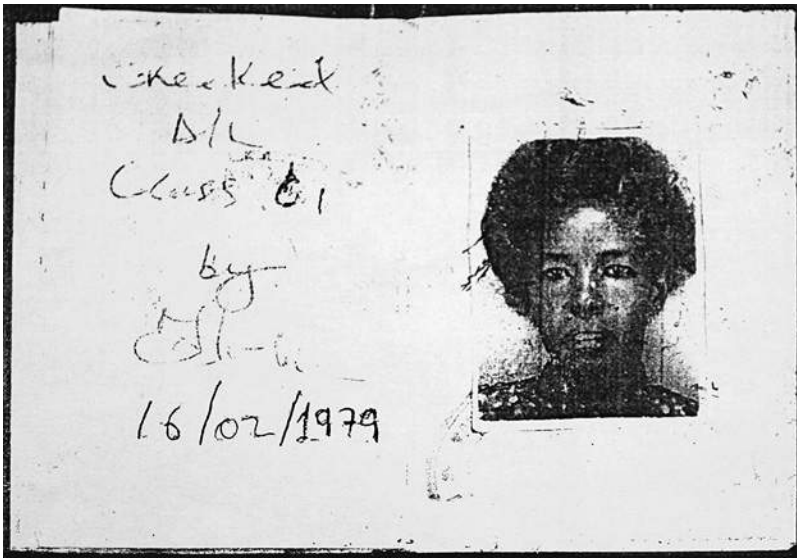 Checked
D/L
Class C1
by
16/02/1979